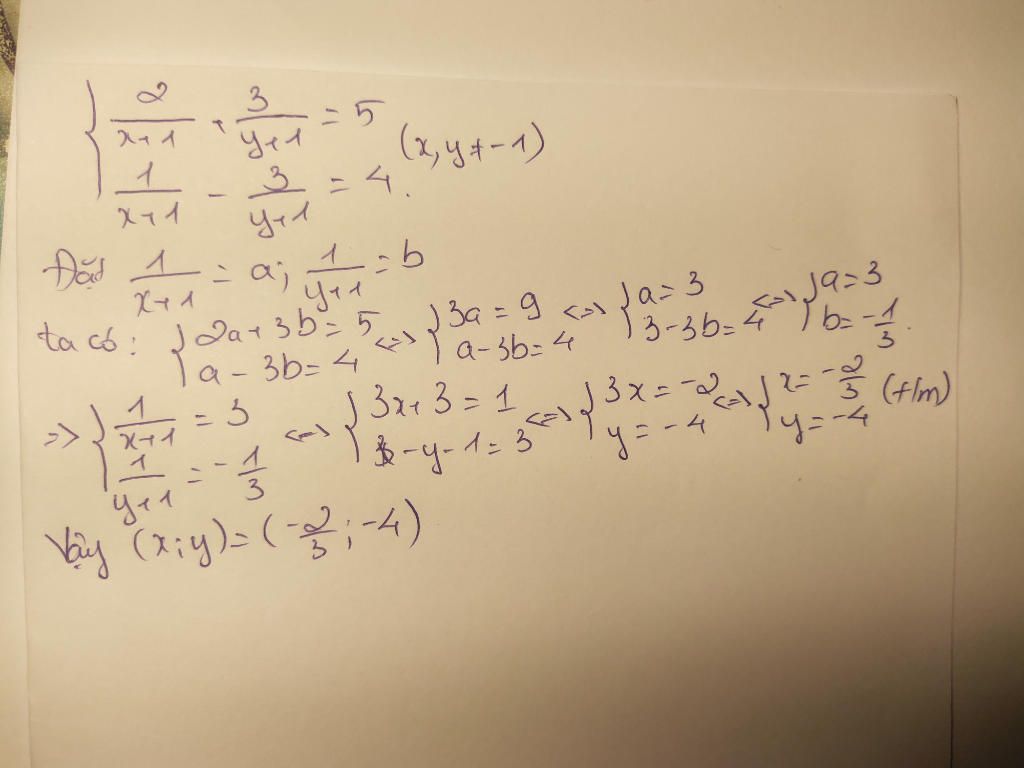 { 2/(x+1) + 3/(y+1) = 5
{ 1/(x+1) - 3/(y+1) = 4. (x, y ≠ -1)
Đặt 1/(x+1) = a; 1/(y+1) = b
ta có: { 2a + 3b = 5 ; a - 3b = 4 <=> { 3a = 9 ; a - 3b = 4 <=> { a = 3 ; 3 - 3b = 4 <=> { a = 3 ; b = -1/3.
=> { 1/(x+1) = 3 ; 1/(y+1) = -1/3 <=> { 3x + 3 = 1 ; -y - 1 = 3 <=> { 3x = -2 ; y = -4 <=> { x = -2/3 ; y = -4 (t/m)
Vậy (x; y) = (-2/3; -4)